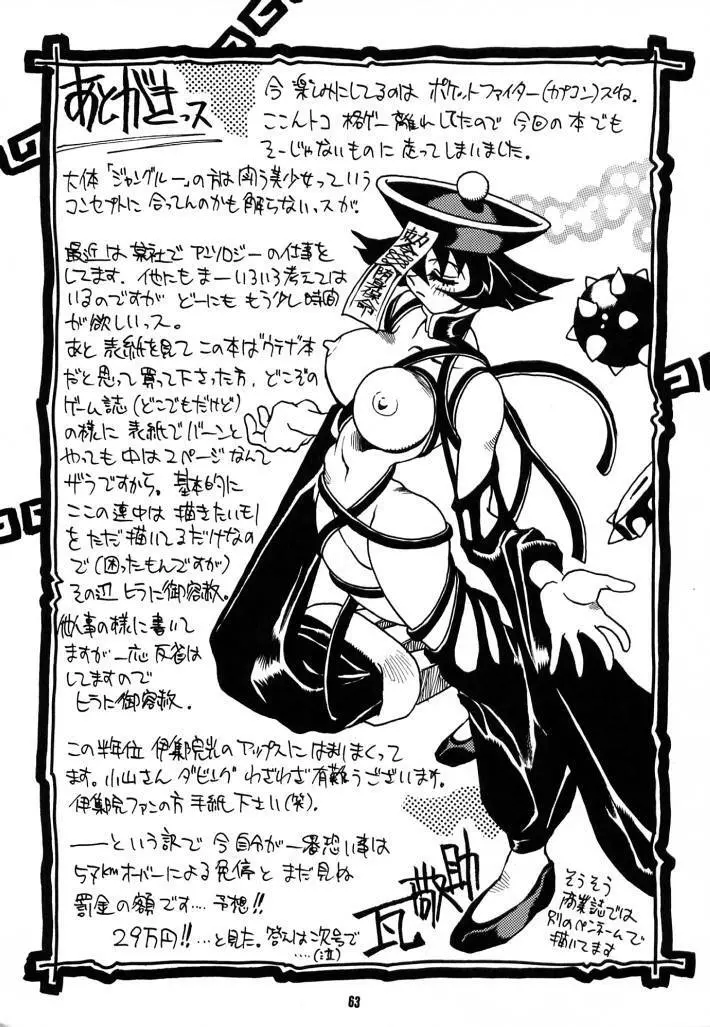 あとがきっス
今 楽しみにしてるのは ポケットファイター(カプコン)スね。
ここんトコ 格ゲー離れしてたので 今回の本でも
そーじゃないものに 走ってしまいました。
大体「ジャングルー」の方は 闘う美少女っていう
コンセプトに 合ってんのかも解らないっスが。
最近は某社でアンソロジーの仕事を
してます。他にもまーいろいろ考えては
いるのですが どーにも もう少し時間
が欲しいっス。
あと 表紙を見て この本はウテナ本
だと思って買って下さった方、どこぞの
ゲーム誌(どこでもだけど)
の様に 表紙でバーンと
やっても 中は2ページなんて
ザラですから。基本的に
ここの連中は 描きたいモノ
をただ描いてるだけなの
で(困ったもんですが)
その辺 ヒラに御容赦。
他人事の様に書いて
ますが一応反省は
してますので
ヒラに御容赦。
この半年位 伊集院光のアップスに はまりまくって
ます。小山さん ダビング わざわざ有難うございます。
伊集院ファンの方 手紙下さい(笑)。
――という訳で 今自分が一番恐い事は
57kmオーバーによる免停と まだ見ぬ
罰金の額です‥‥予想!!
29万円!!…と見た。答えは次号で
‥‥(泣)
瓦敬助
そうそう
商業誌では
別のペンネームで
描いてます
63